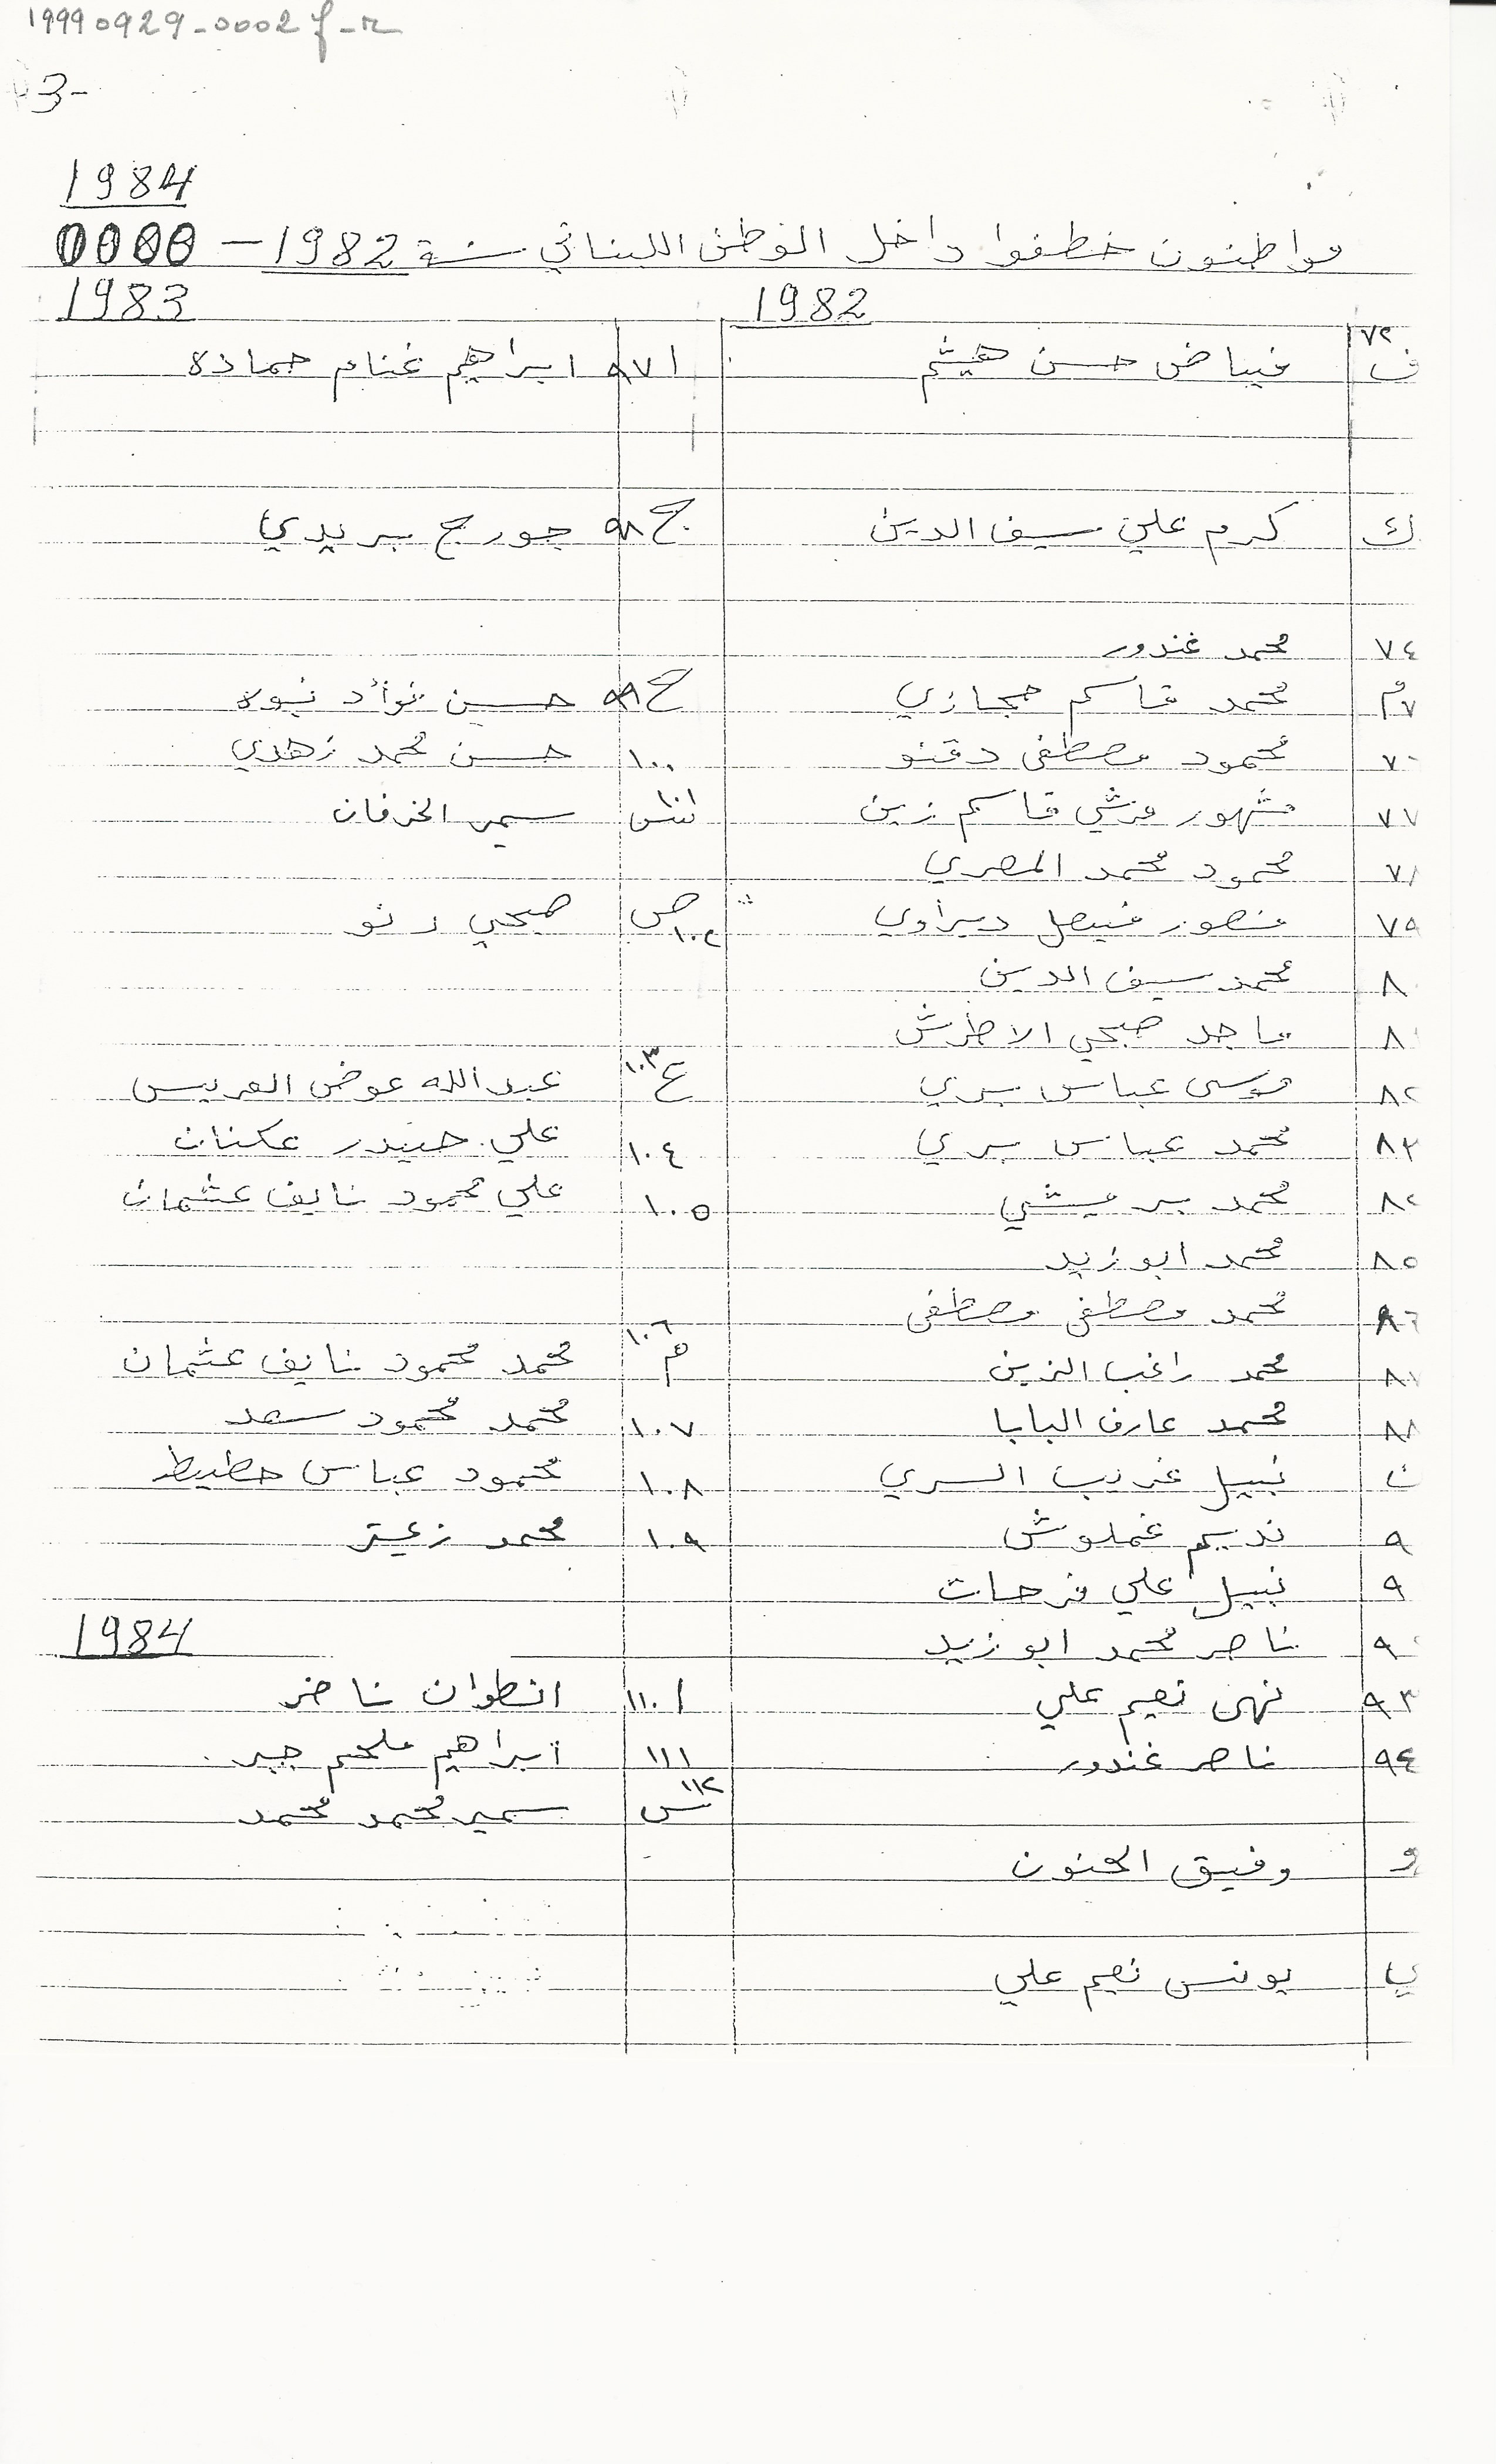 19990929-0002f-r
3-
1984
مواطنون خطفوا داخل الوطن اللبناني سنة 1982 -
1982
1983
٧٢ ف فياض حسن هيثم
٩٧ ا ابراهيم غنام حمادة
ك كرم علي سيف الدين
٩٨ ج جورج بريدي
٧٤ محمد غندور
م ٧ محمد قاسم حجازي
٩٩ ح حسين فؤاد
٧ محمود مصطفى دقنو
١٠٠ حسن محمد زهدي
٧٧ مشهور مرشي قاسم زين
١٠١ س سمير الخرفان
٧ محمود محمد المصري
٧٩ منصور فيصل ديراوي
١٠٢ ص صبحي رنو
٨ محمد سيف الدين
٨ ماجد صبحي الاطرش
٨٢ موسى عباس بري
١٠٣ ع عبدالله عوض العريس
٨٣ محمد عباس بري
١٠٤ علي حيدر عكنان
٨ محمد بر يشي
١٠٥ علي محمود نايف عثمان
٨٥ محمد ابو زيد
٨٦ محمد مصطفى مصطفى
٨٧ محمد راغب الزين
١٠٦ م محمد محمود نايف عثمان
٨٨ محمد عارف البابا
١٠٧ محمد محمود سعد
ن نبيل غريب السري
١٠٨ محمود عباس حطيط
٩ نديم غملوش
١٠٩ محمد زعيتر
٩ نبيل علي فرحات
٩ ناصر محمد ابو زيد
1984
٩٣ نهى نعيم علي
١١٠ ا انطوان ناضر
٩٤ ناصر غندور
١١١ ابراهيم ملحم جبر
١١٢ س سمير محمد محمد
و وفيق الحنون
ي يونس نعيم علي